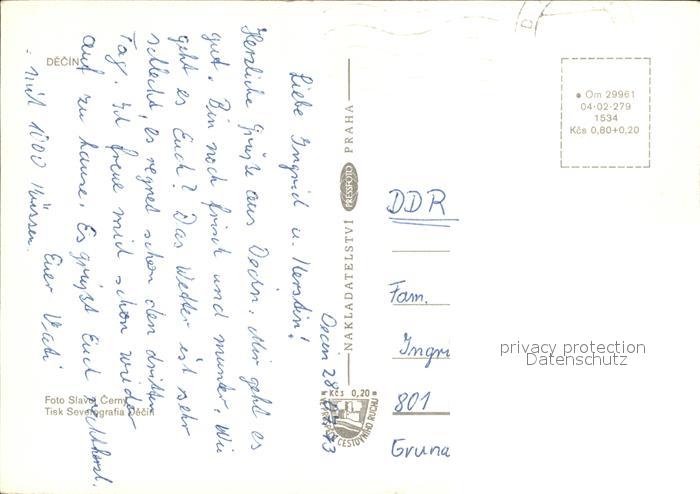 DĚČÍN
Decin 28. 73
Liebe Ingrid u. Kerstin!
Herzliche Grüße aus Decin. Mir geht es
gut. Bin noch frisch und munter. Wie
geht es Euch? Das Wetter ist sehr
schlecht, es regnet schon den dritten
Tag. Ich freue mich schon wieder
auf zu hause. Es grüßt Euch nochmal.
mit 1000 Küssen.
Euer Vati
Foto Slavoj Černý
Tisk Severografia Děčín
NAKLADATELSTVÍ PRESSFOTO PRAHA
Kčs 0,20
CESTOVNÍHO RUCHU
Om 29961
04-02-279
1534
Kčs 0,80+0,20
DDR
Fam.
Ingri
801
Gruna
privacy protection
Datenschutz